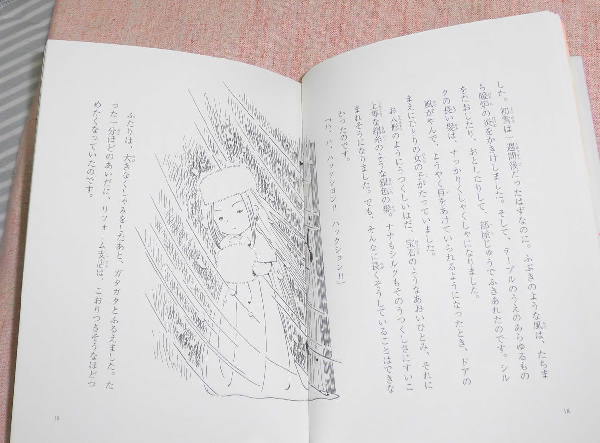 した。初雪は一週間後だったはずなのに。ふぶきのような風は、たちま
ち暖炉の炎をかきけしました。そして、テーブルのうえのあらゆるもの
をたおしたり、おとしたりして、部屋じゅうでふきあれたのです。シル
クの長い髪は、すっかりくしゃくしゃになりました。
風がやんで、ようやく目をあけていられるようになったとき、ドアの
まえにひとりの女の子がたっていました。
お人形のようにうつくしいはだ、宝石のようなあおいひとみ。それに
上等な絹糸のような銀色の髪。ナナもシルクもそのうつくしさにすいこ
まれそうになりました。でも、そんなに長くそうしていることはできな
かったのです。
「ハ、ハ、ハックション!! ハックション!!」
ふたりは、大きなくしゃみをしたあと、ガタガタとふるえました。た
った一分ほどのあいだに、リフォーム支度は、こおりつきそうなほどつ
めたくなっていたのです。
18
19